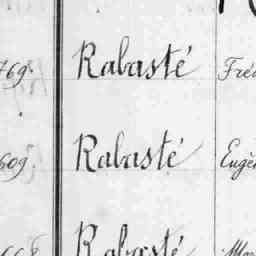 769. Rabasté Fré
609. Rabasté Eugè
Rabasté